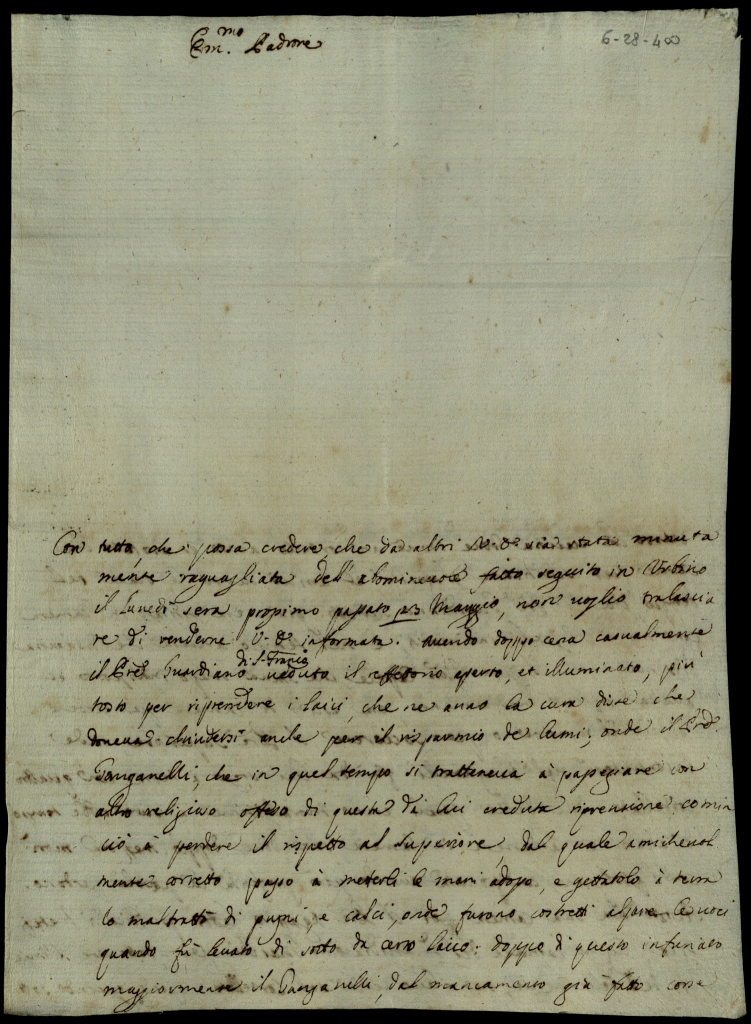 Em.mo Padrone
6-28-400
Con tutto, che possa credere, che da altri V. E. sia stata minuta
mente raguagliata dell'abominevole fatto seguito in Urbino
il Lunedì sera propimo passato p.o 3 Maggio, non voglio tralascia
re di renderne V. E. informata. Avendo doppo cena casualmente
il Pre Guardiano di S. Franco veduto il reffettorio aperto, et illuminato, più
tosto per riprendere i laici, che ne anno la cura disse che
doveva chiudersi anche per il risparmio de lumi; onde il Pre
Ganganelli, che in quel tempo si tratteneva à passegiare con
altro religioso offeso di questa da lui creduta riprensione comin
ciò a perdere il rispetto al Superiore, dal quale amichevol
mente corretto passò à metterli le mani adosso, e gettatolo à terra
lo maltrattò di pugni, e calci, onde furono costretti alzare le voci
quando fù levato di sotto da certo laico: doppo di questo infuriato
maggiormente il Ganganelli, dal mancamento già fatto corse